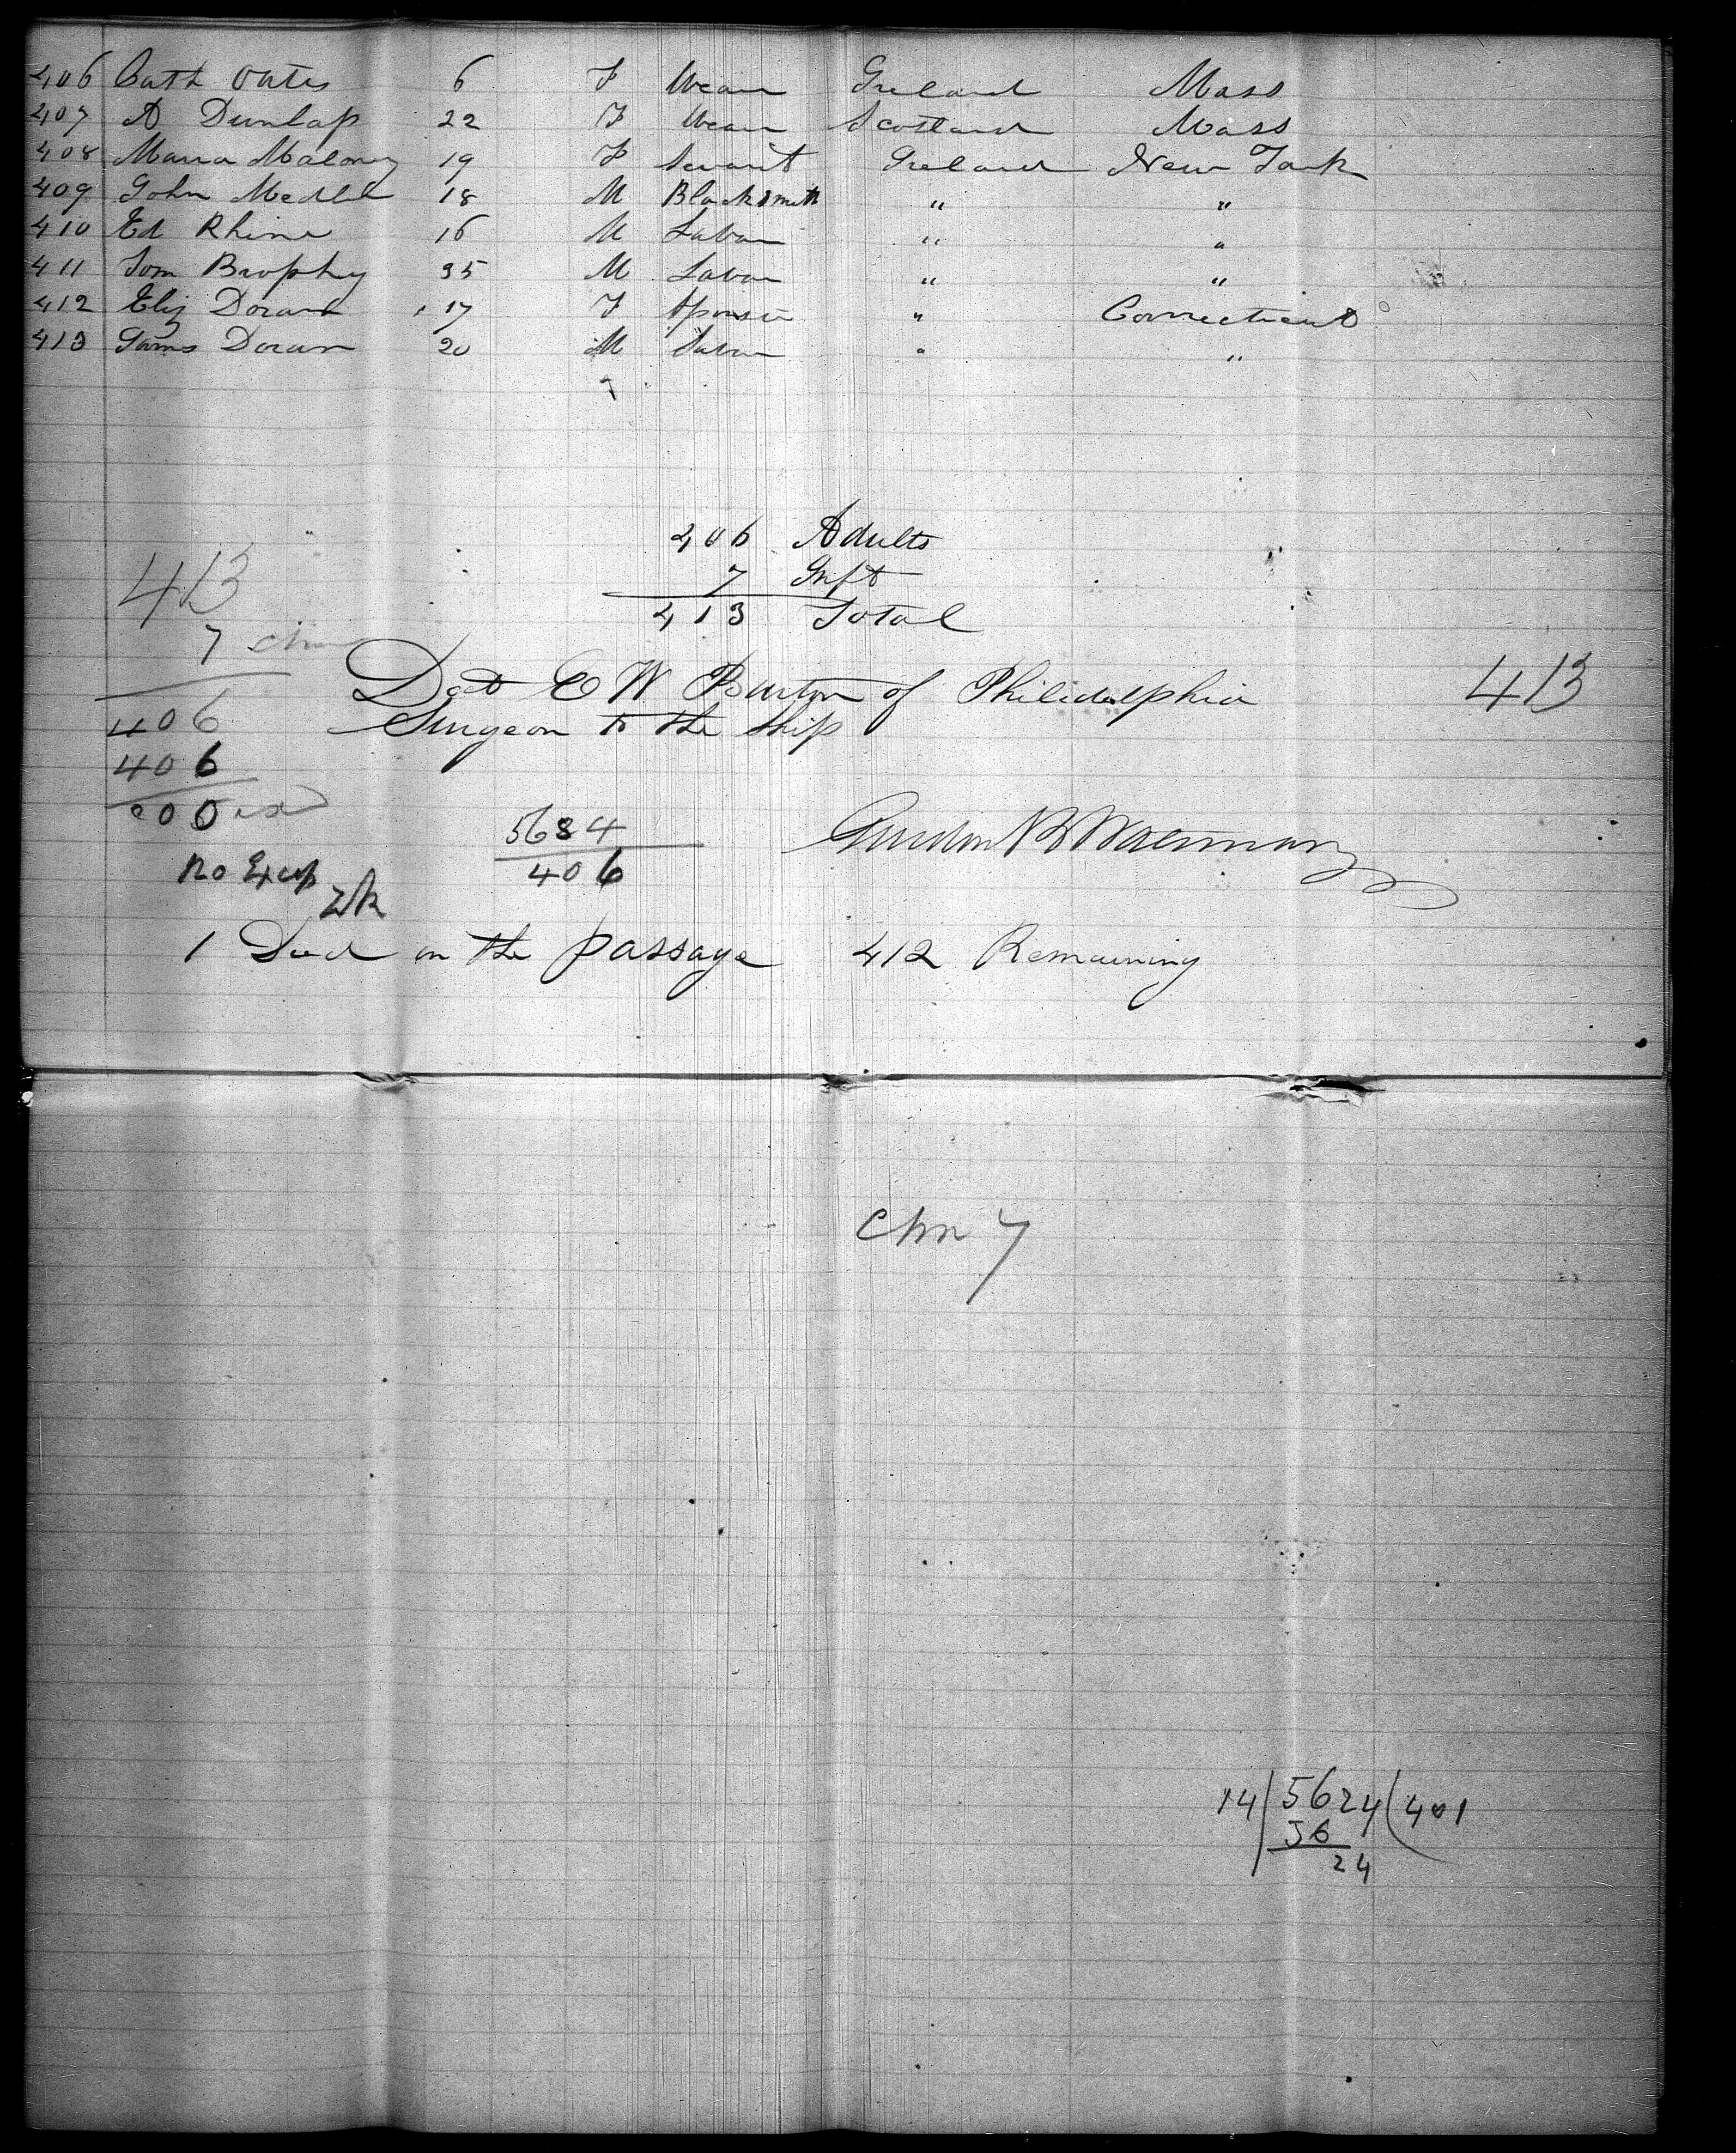 406 Cath Oates 6 F Weav Ireland Mass
407 A Dunlap 22 F Weav Scotland Mass
408 Maria Maloney 19 F Servant Ireland New York
409 John 18 M Blacksmith " "
410 Ed Rhine 16 M Labor " "
411 Tom Brophy 35 M Labor " "
412 Eliz Doran 17 F " Connecticut
413 Jams Doran 20 M Labor " "
406 Adults
7 Inft
413 Total
413
7 chn
406
406
000
No Exep
Doct E W Burton of Philidalphia
Surgeon to the Ship
413
5684
406
1 Died on the passage 412 Remaining
chn 7
14 5624 401
56
24